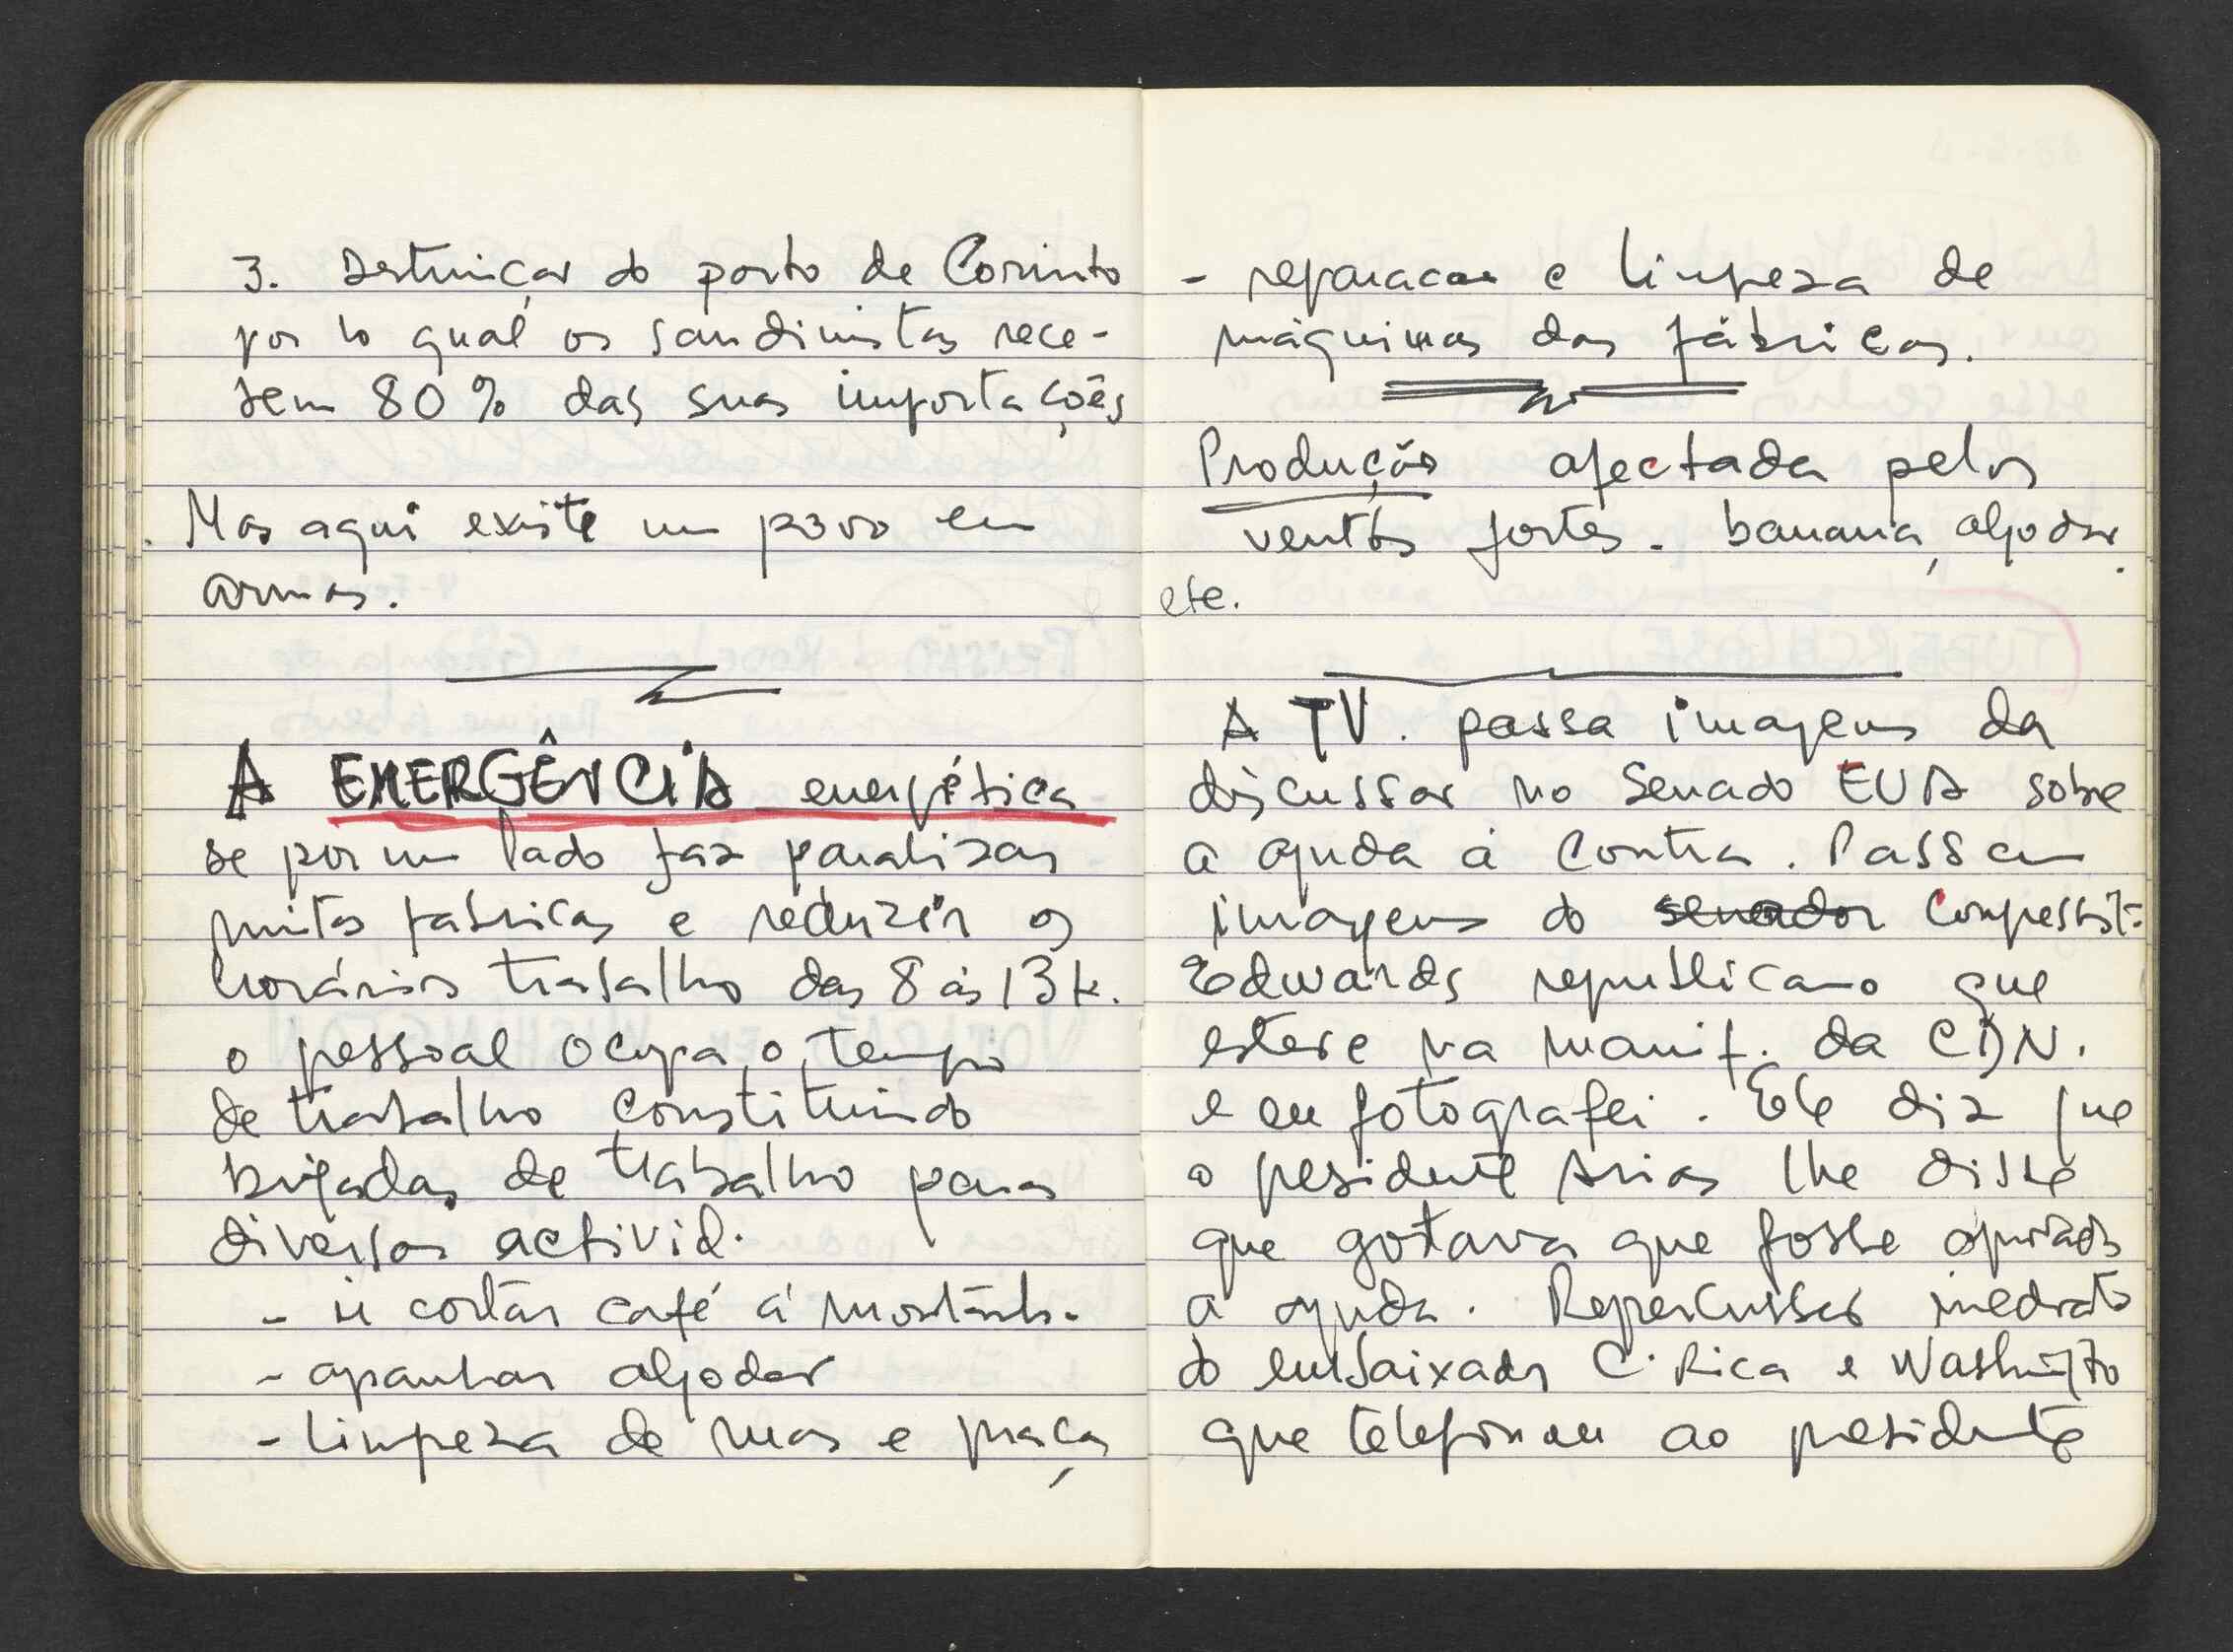 3. Destruição do porto de Corinto
por lo qual os sandinistas rece-
bem 80% das suas importações
Mas aqui existe um povo em
armas.
A EMERGÊNCIA energética
se por um lado faz paralizar
muitas fabricas e reduzir os
horários trabalho das 8 às 13 h.
o pessoal ocupa o tempo
de trabalho constituindo
brigadas de trabalho para
diversas activid.
- ir cortar café á montanha
- apanhar algodão
- limpeza de ruas e praças
- reparacao e limpeza de
máquinas das fábricas.
Produção afectada pelos
ventos fortes. banana, algodão.
etc.
A TV. passa imagens da
discussão no Senado EUA sobre
a ajuda á Contra. Passam
imagens do senador Congressist-
Edwards republicano que
esteve na manif. da CDN.
e eu fotografei. Ele diz que
o presidente Arias lhe disse
que gotava que fosse apoiada
a ajuda. Repercussão imediata
do embaixador C. Rica e Washington
que telefonou ao presidente